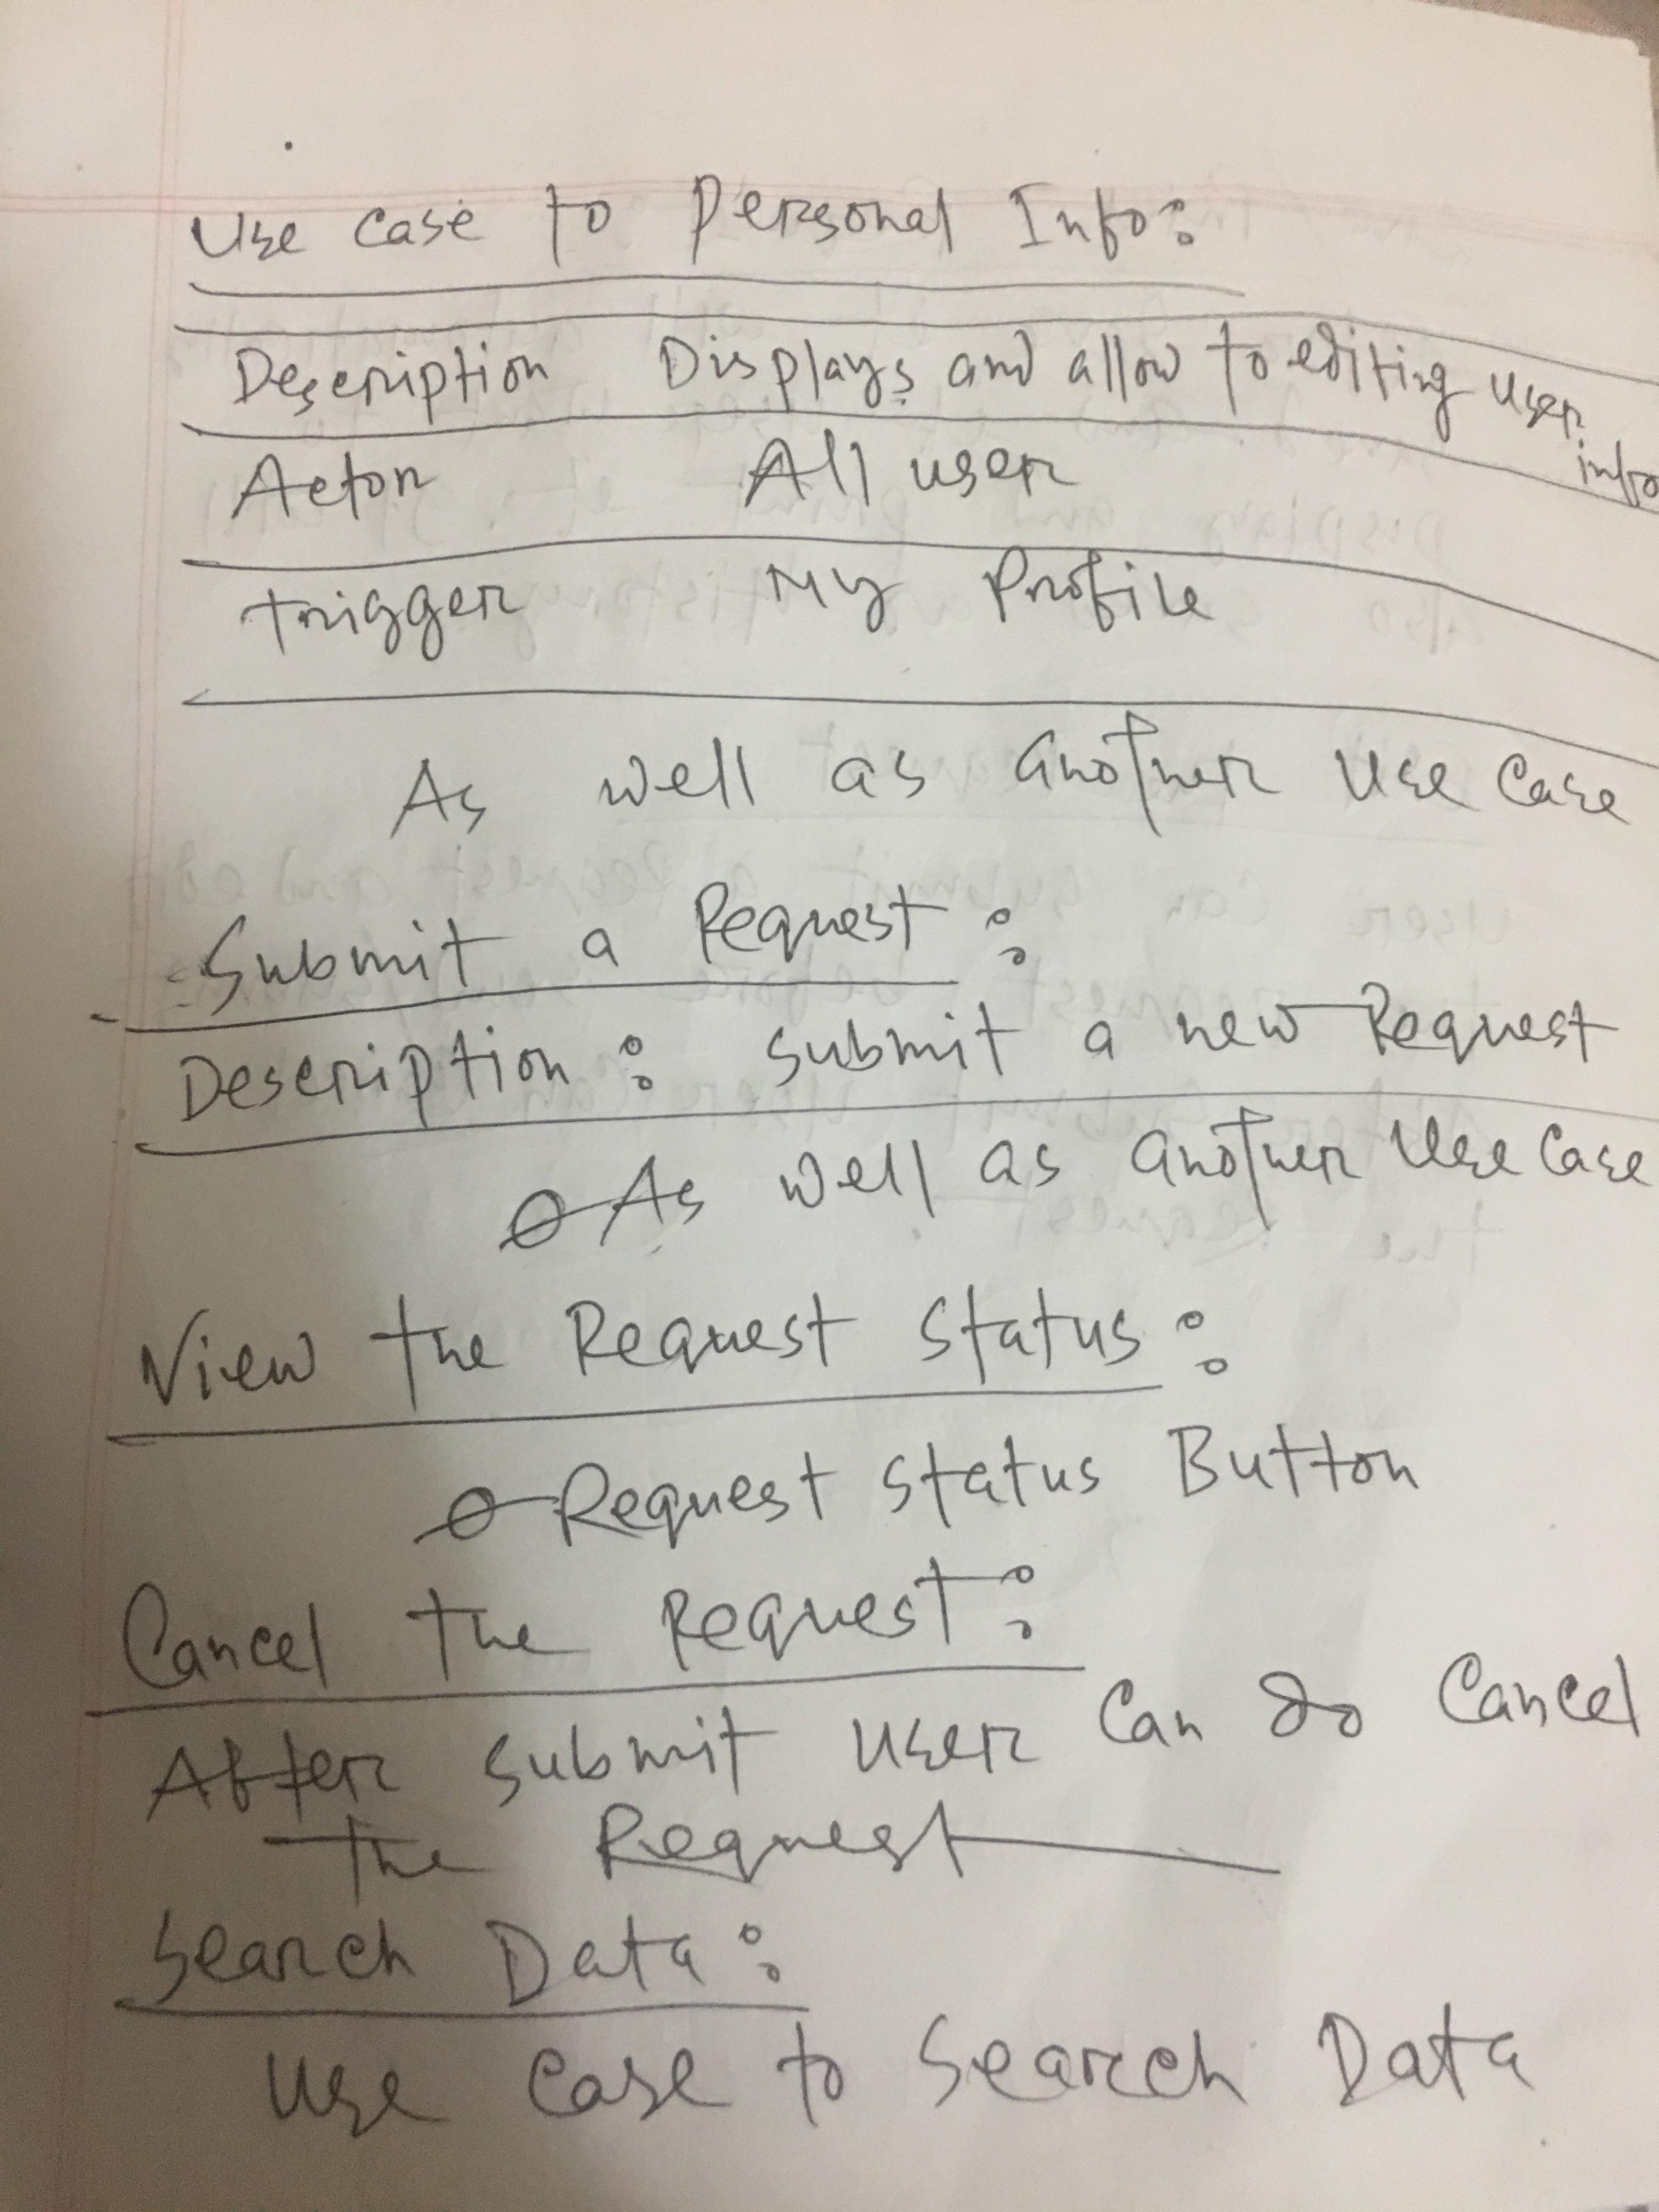 Use Case to Personal Info:
Description Displays and allow to editing user info
Actor All user
Trigger My Profile
As well as another Use Case
Submit a Request:
Description: Submit a new Request
As well as another Use Case
View the Request Status:
Request Status Button
Cancel the Request:
After submit user Can do Cancel
the Request
Search Data:
Use Case to Search Data